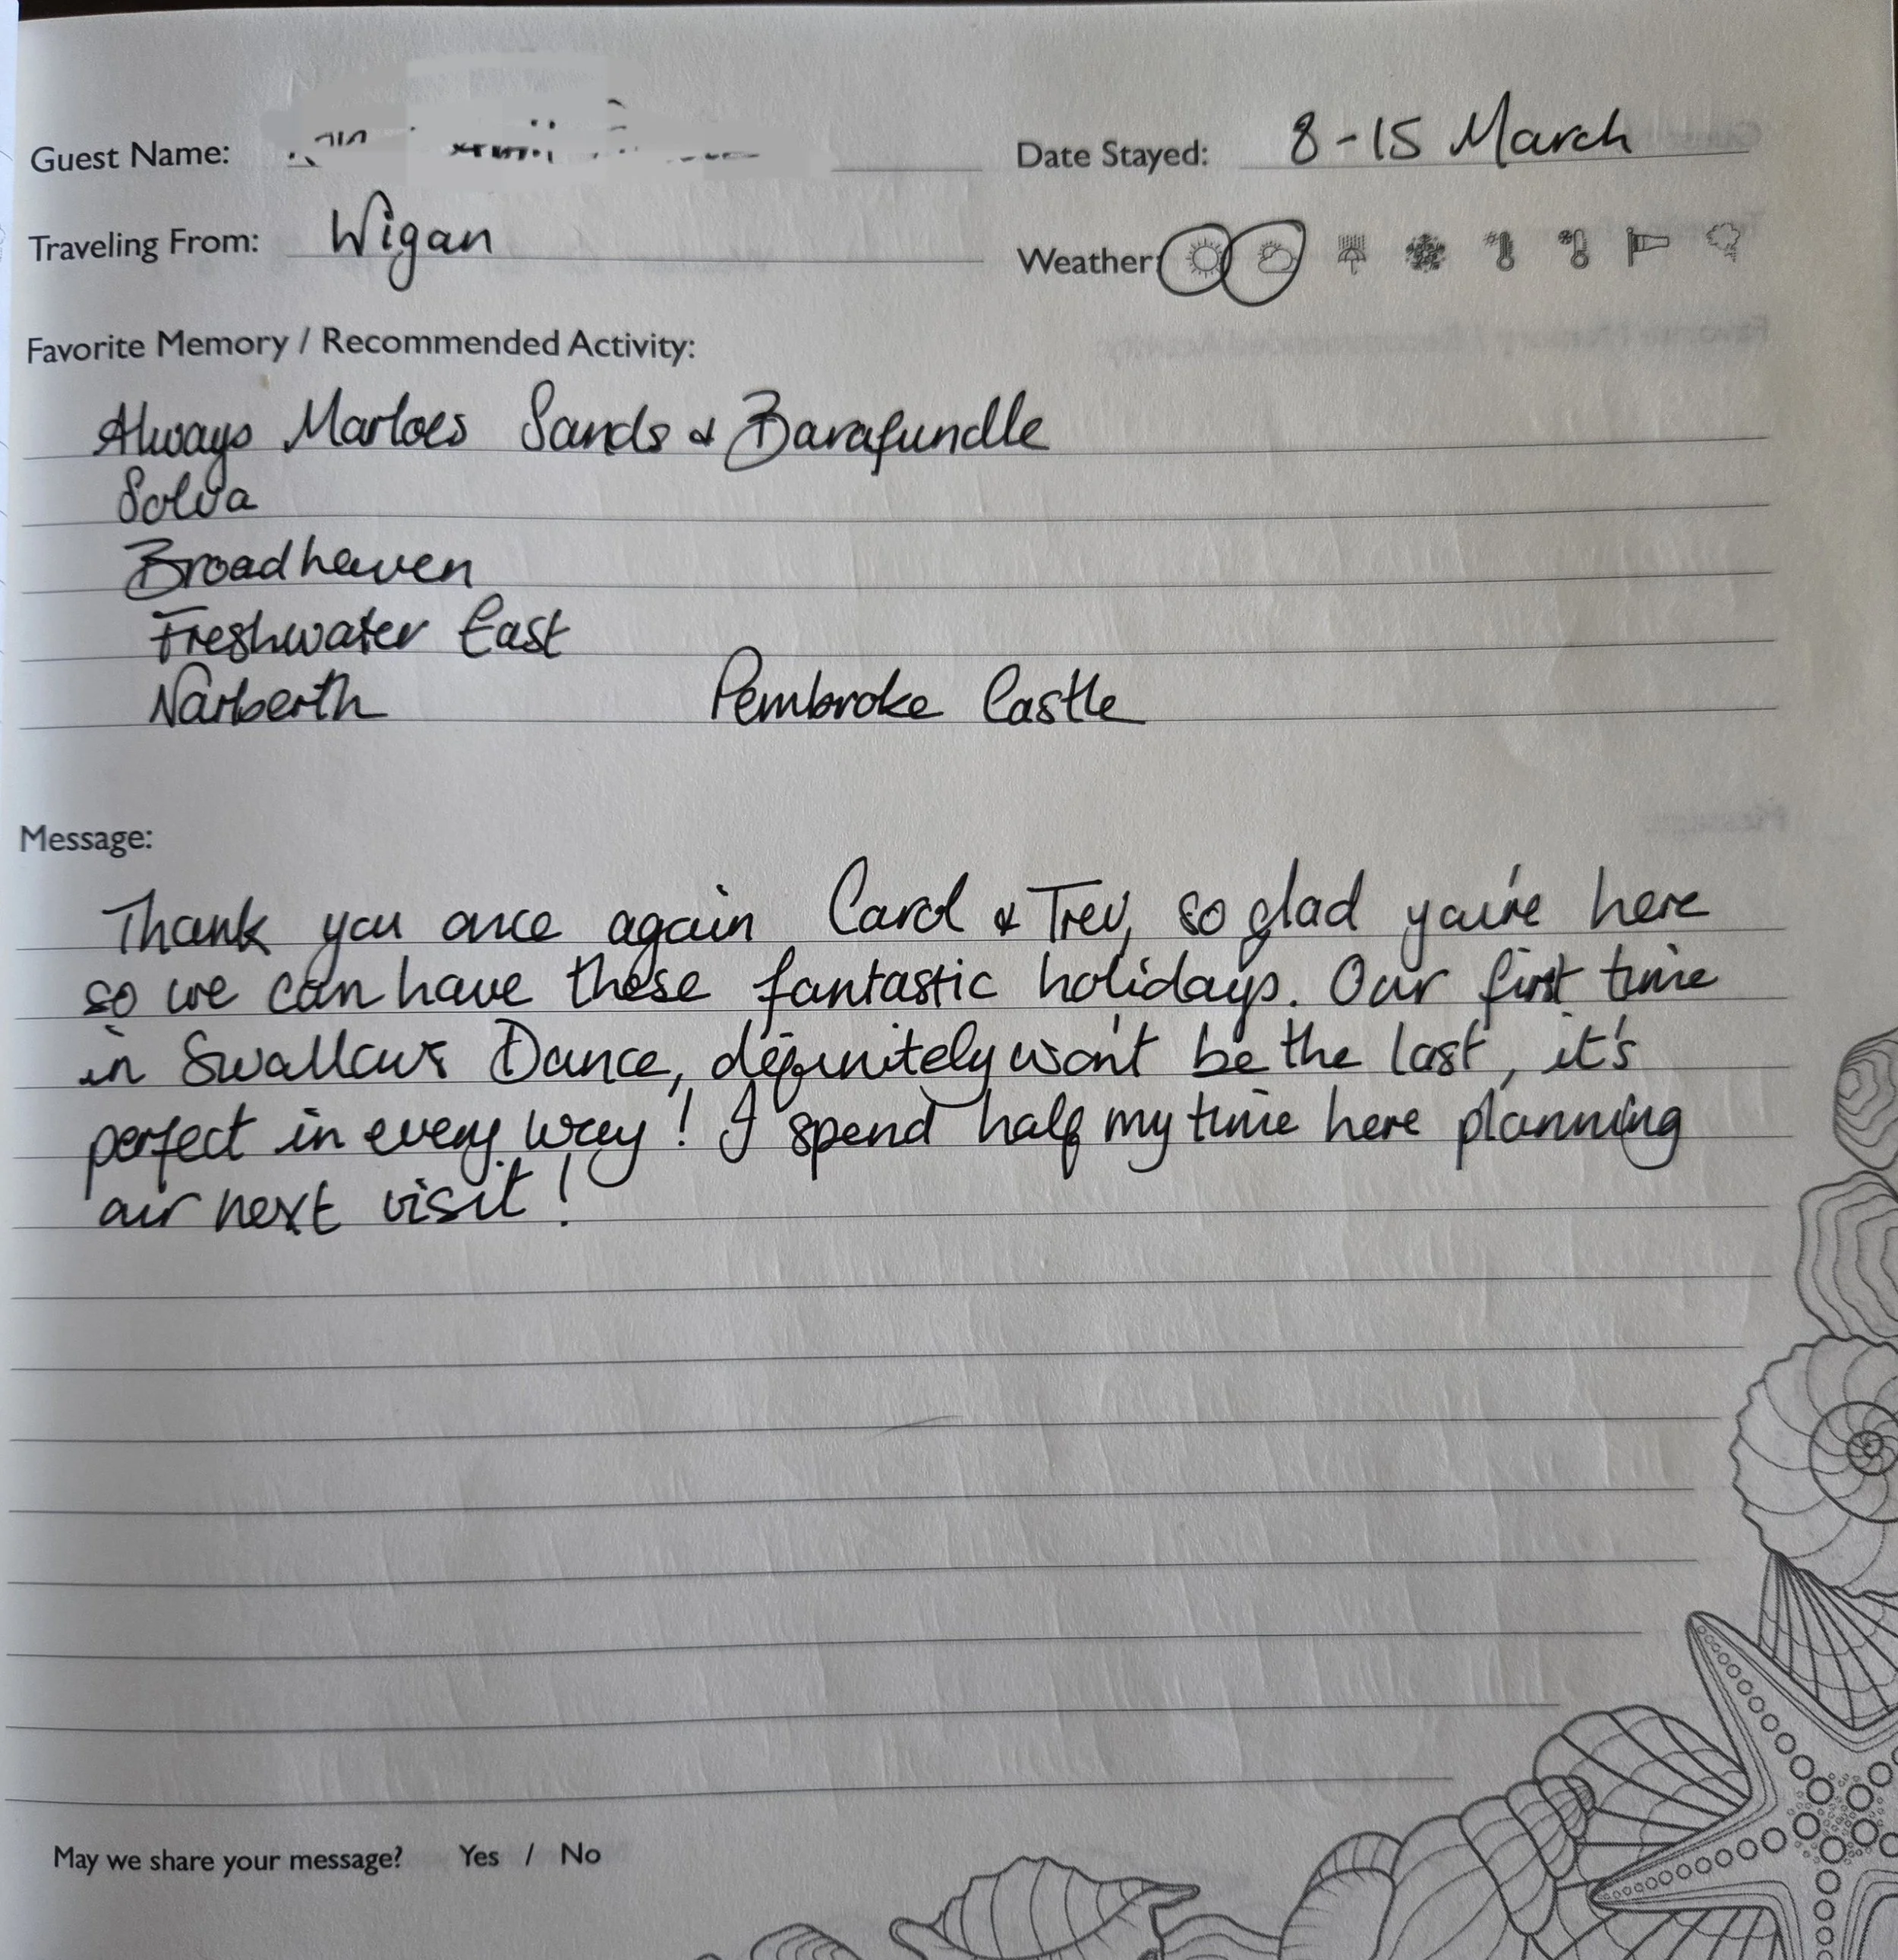 Guest Name:
Date Stayed: 8-15 March
Traveling From: Wigan
Weather:
Favorite Memory / Recommended Activity:
Always Marloes Sands & Barafundle
Solva
Broadhaven
Freshwater East
Narberth Pembroke Castle
Message:
Thank you once again Carol & Trev, so glad you're here
so we can have these fantastic holidays. Our first time
in Swallows Dance, definitely won't be the last, it's
perfect in every way! I spend half my time here planning
our next visit!
May we share your message? Yes / No